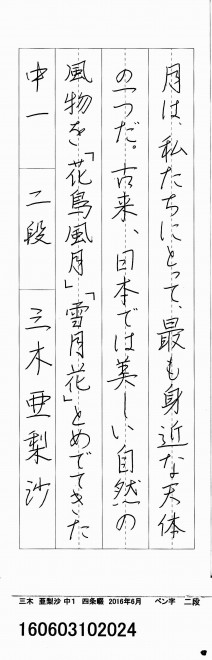 月は、私たちにとって、最も身近な天体
の一つだ。古来、日本では美しい自然の
風物を「花鳥風月」「雪月花」とめでてきた
中一 二段 三木亜梨沙
三木 亜梨沙 中1 四条畷 2016年6月 ペン字 二段
160603102024